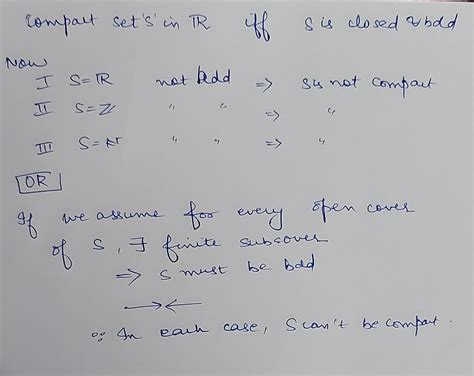 Compact set 'S' in ℝ iff S is closed & bdd
Now
I S=ℝ not bdd ⇒ S is not compact
II S=ℤ " " ⇒ "
III S=ℕ " " ⇒ "
OR
If we assume for every open cover
of S, ∃ finite subcover
⇒ S must be bdd
→←
∵ In each case, S can't be compact.